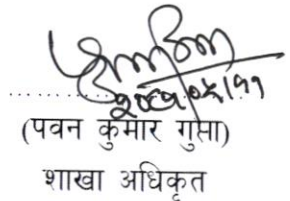 (पवन कुमार गुप्ता)
शाखा अधिकृत